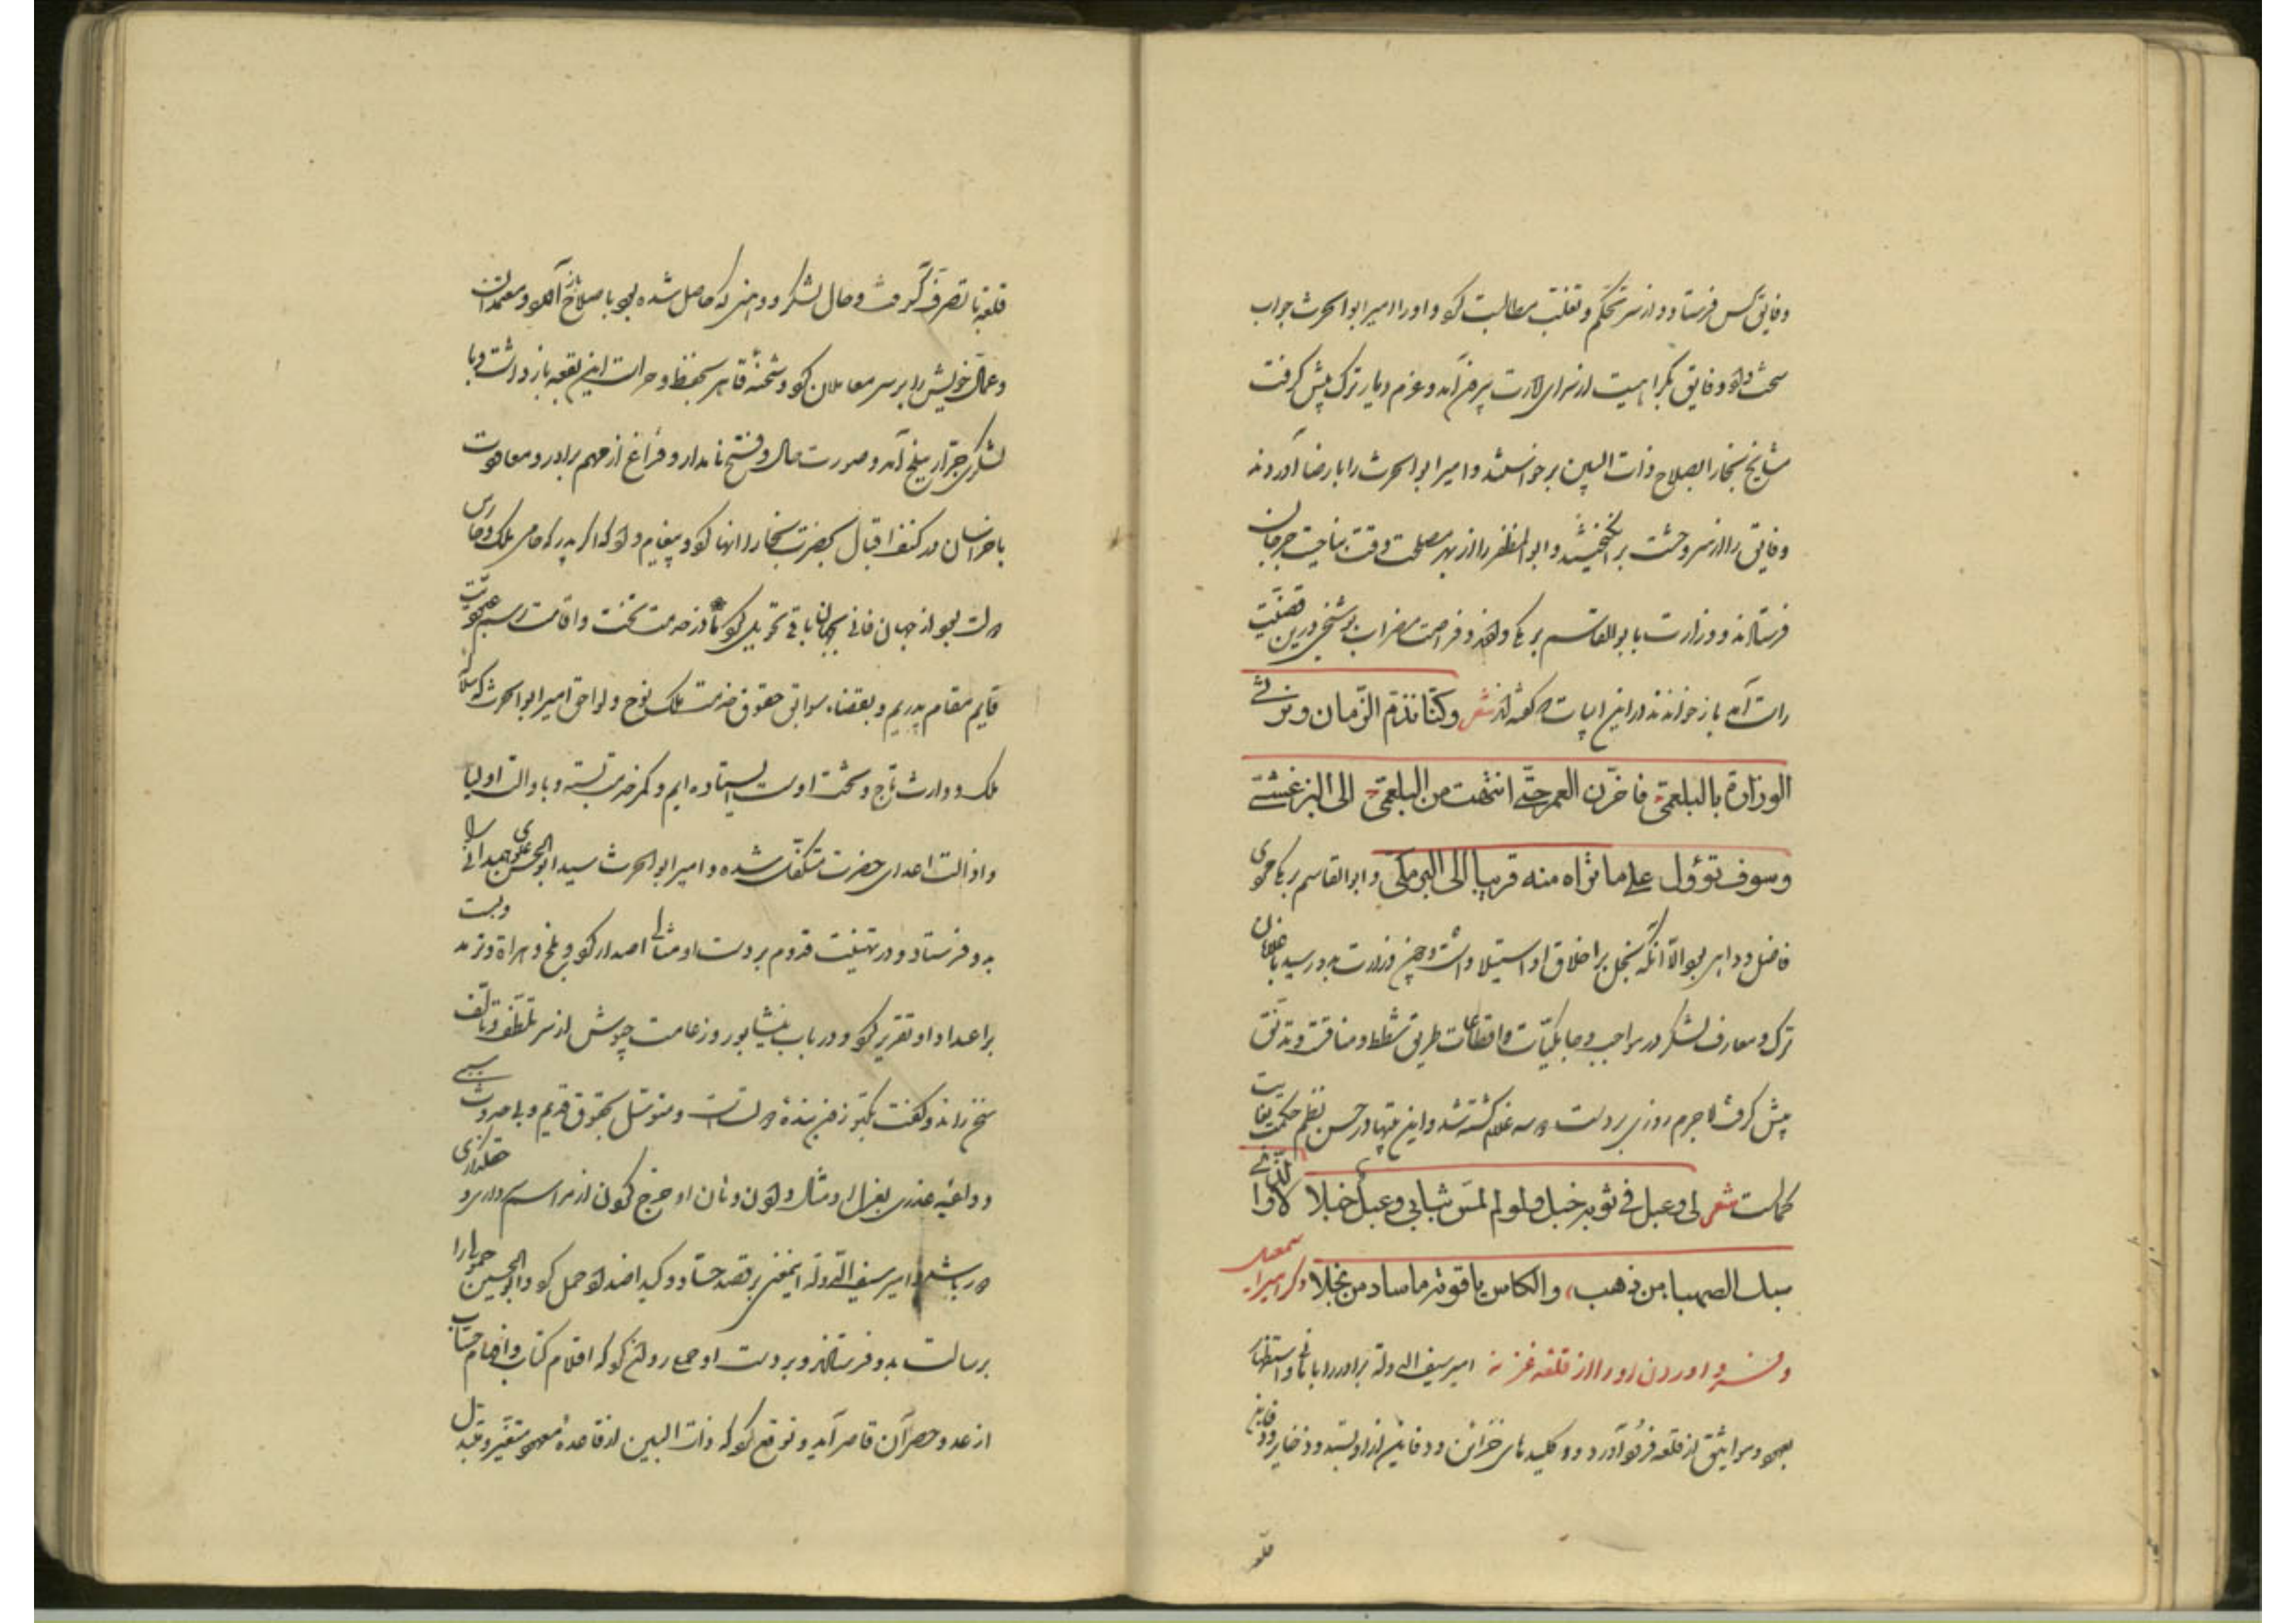 وفایق کس فرستاد و از سر تحکم و تغلب مطالبت کرد و او را امیر ابوالحرث جواب
سخت داد و فایق بکراهیت از سرای امارت بیرون آمد و عزم دیار ترک پیش گرفت
مشایخ بخارا بصلاح ذات البین برخواستند و امیر ابوالحرث را با رضا آوردند
وفایق را از سر وحشت برانگیختند و ابوالمظفر را از بهر مصلحت وقت بناحیت جرجان
فرستادند و وزارت بابوالقاسم برمکی دادند و فراست مضراب بوشنجی درین قضیت
راست آمد باز خواندند در این ابیات که گفته اند شعر وکنّا نذمّ الزّمان ونرثی
الوزارة بالبلعمیّ فاخّرنا العمر حتّی انتهت من البلعمیّ الی البرغشیّ
وسوف تؤول علی ما نراه منه قریبا الی البرمکی و ابوالقاسم برمکی مردی
فاضل و داهی بود الّا آنکه بخل بر اخلاق او استیلا داشت و چون وزارت بدو رسید با غلامان
ترک و معارف لشکر در مواجب و جامگیّات و اقطاعات طریق شطط و مناقشت و تدنّق
پیش گرفت لاجرم روزی بر دست دو سه غلام کشته شد و این بیتها در حسن نظم حکمت بغایت
کمالست شعر لی وعبل فی ثوبه خبل ولو لم لمس ثیابی وعبل خبلا
سبك الصهبا من ذهب، والكاس یاقوتة ما ساد من بخلا ذکر امیر اسمعیل
و فرود اوردن او را از قلعه غزنه امیر سیف الدوله برادر را بامانی و استظهار
بعهود و مواثیق از قلعه فرود آورد و کلیدهای خزائن و دفاین از او بستد و ذخایر و دفاین
قلعه
قلعه با تصرف گرفت و حال لشکر و وهنی که حاصل شده بود باصلاح باز آورد و معتمدان
و عمّال خویش را بر سر معاملان کرد و شحنهٔ قاهر بحفظ و حراست این بقعه بازداشت و با
لشکری جرّار ببلخ آمد و صورت حال و فتح نامدار و فراغ از مهم برادر و معاودت
باخراسان در کنف اقبال بحضرت بخارا انها کرد و پیغام داد که اگر پدر که حامی ملک و حارس
دولت بود از جهان فانی بجهان باقی تحویل کرد ما در خدمت تخت و اقامت رسم عبودیت
قایم مقام پدریم و بقضاء سوابق حقوق خدمت ملک نوح و لواحق امیر ابوالحرث که سلالهٔ
ملک و وارث تاج و تخت اوست ایستاده ایم و کمر خدمت بسته و باوالت اولیا
و اذالت اعدای حضرت متکفّل شده و امیر ابوالحرث سید ابوالحسن علوی همدانی را
بدو فرستاد و در تهنیت قدوم بر دست او مثالی اصدار کرد و بلخ و هراة و ترمد و بست
بر اعداد او تقریر کرد و در باب نیشابور و زعامت جیوش از سر تلطّف و تألّف
سخن راند و گفت بکتوزون بندهٔ دولتست و متوسّل بحقوق قدیم و بی حدوث سببی
و داعیه عذری بعزل او مثال دادن و نان او خرج کردن از مراسم دولتداری
دور باشد و امیر سیف الدوله این معنی بر قصد حسّاد و کید اضداد حمل کرد و ابوالحسین حمولی را
برسالت بدو فرستاد و بر دست او حمل روانه کرد که اقلام کتاب و افهام حسّاب
از عد و حصر آن قاصر آید و توقع کرد که ذات البین از قاعدهٔ معهود متغیر و متبدل